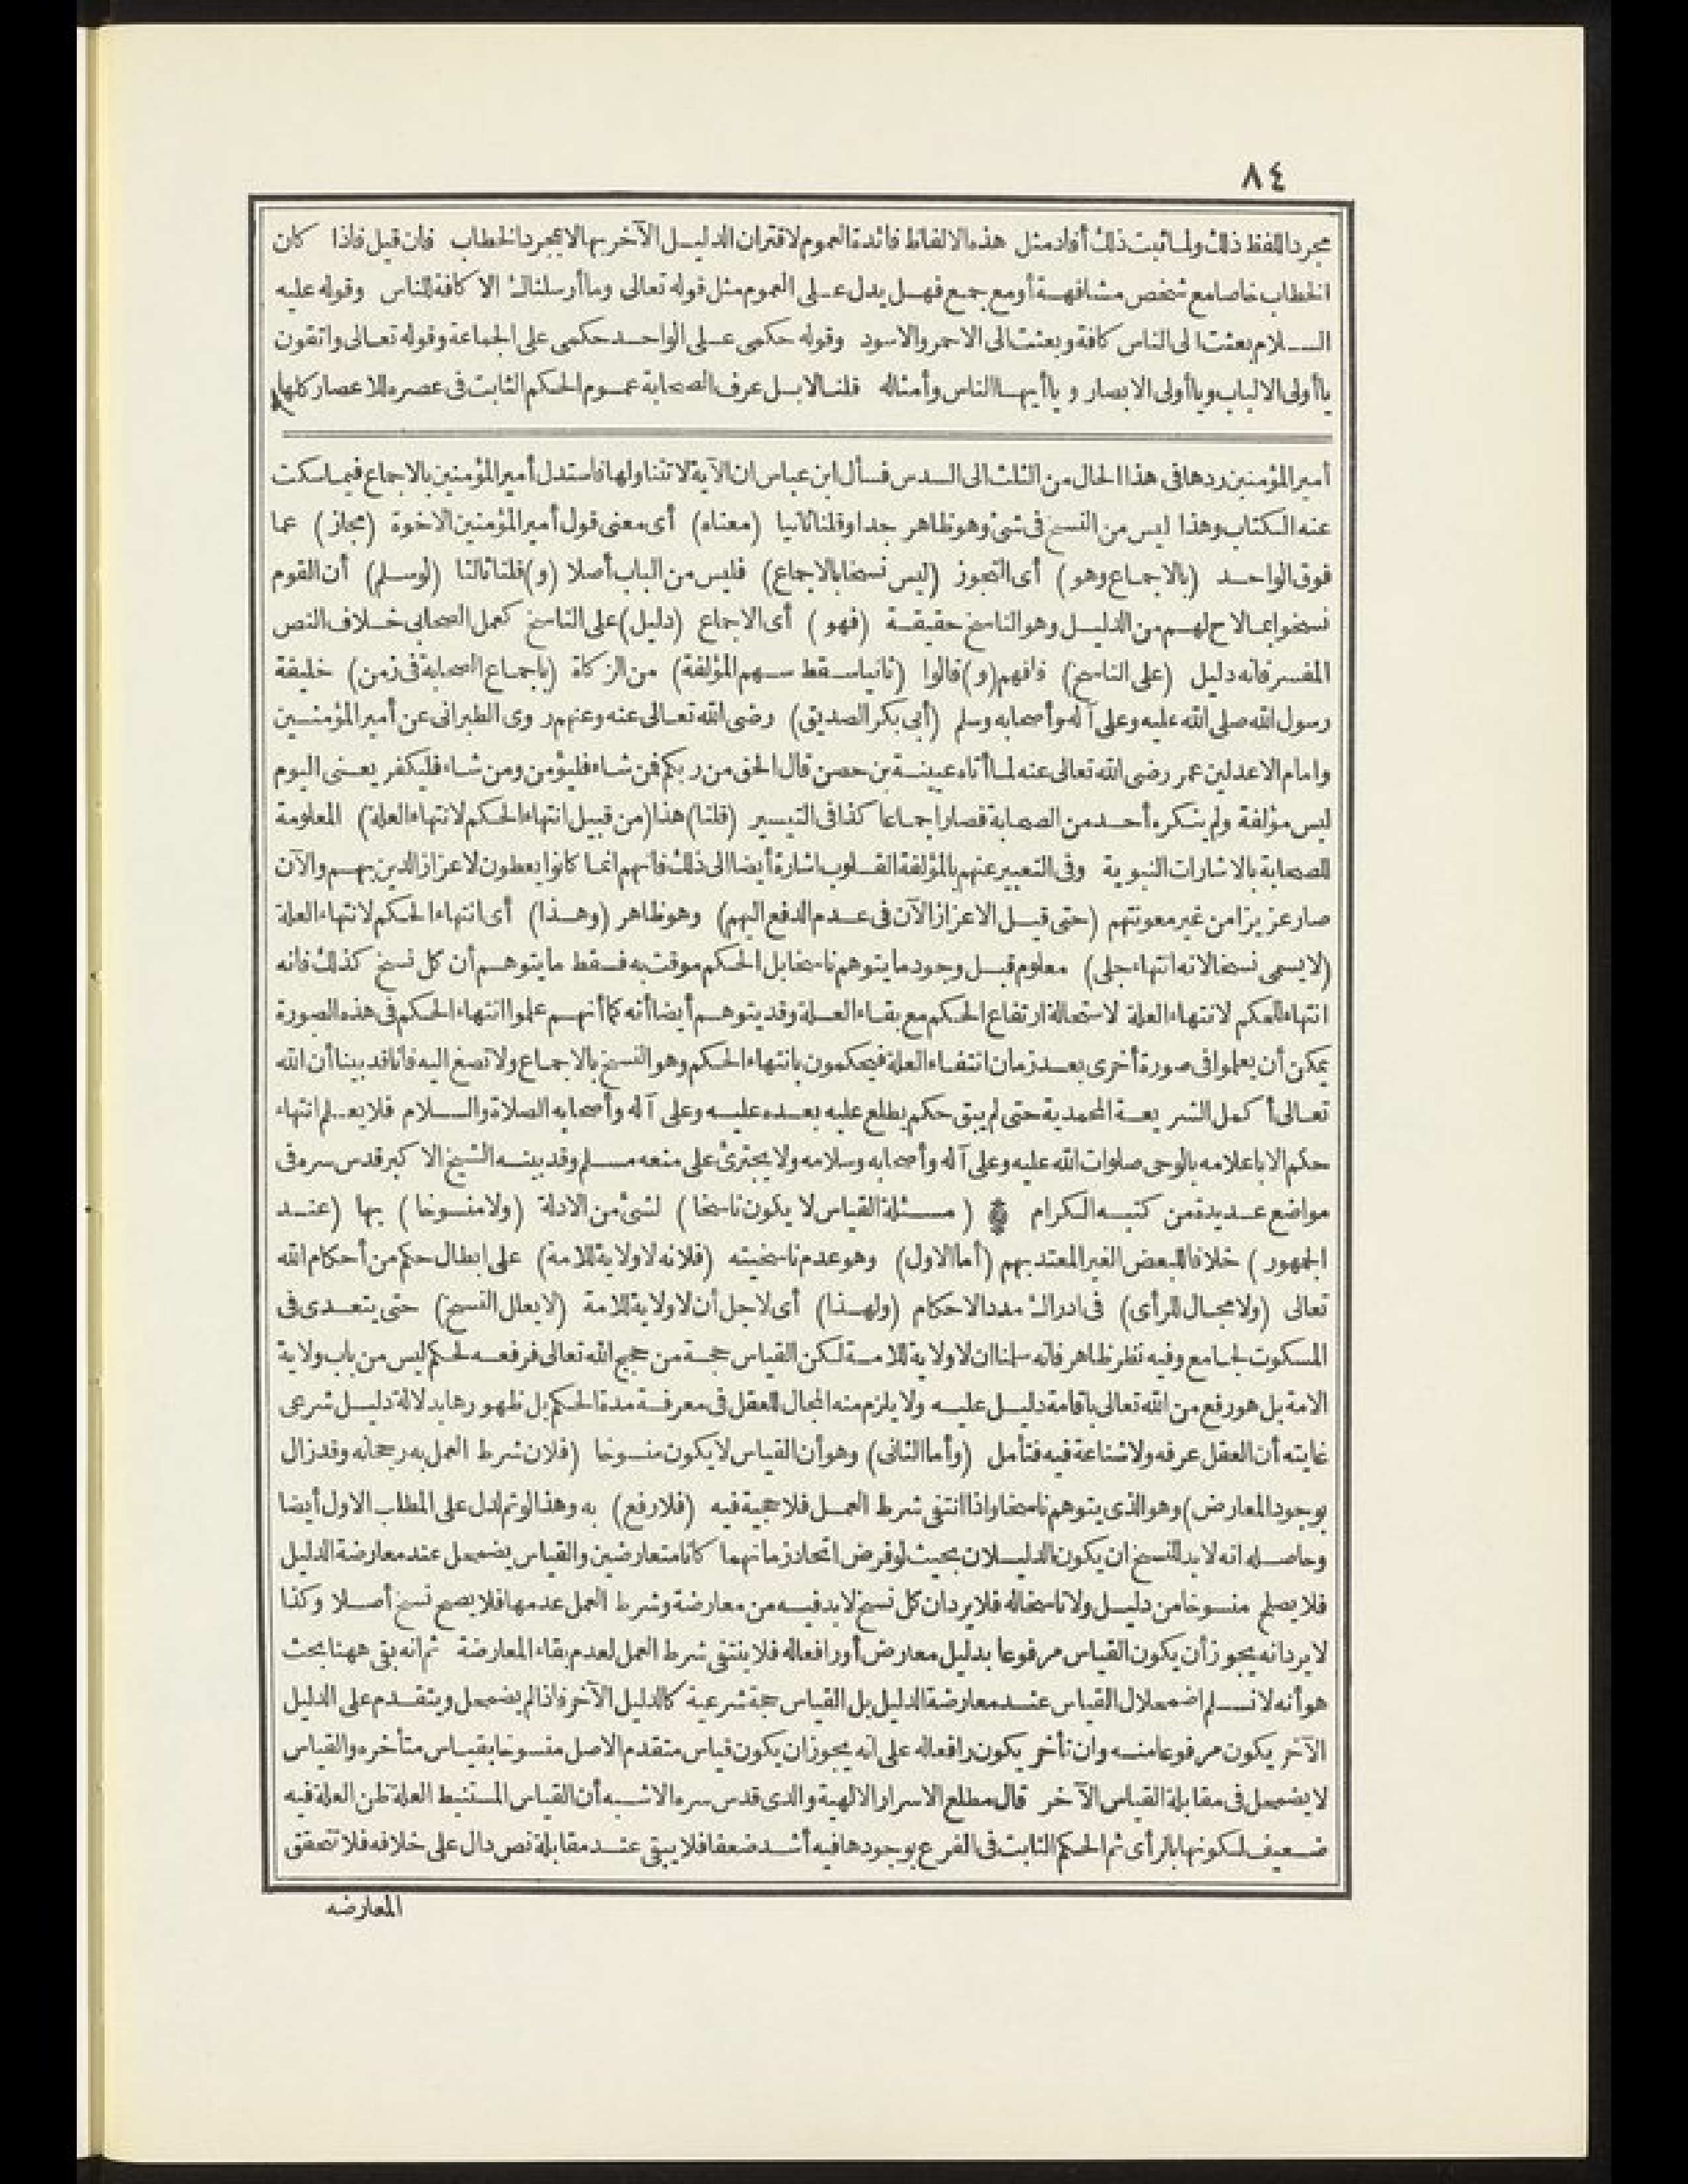 ٨٤
مجرد اللفظ ذلك ولما ثبت ذلك أفاد مثل هذه الالفاظ فائدة العموم لاقتران الدليل الآخر بها لا بمجرد الخطاب فان قيل فاذا كان
الخطاب خاصا مع شخص مشافهة أو مع جمع فهل يدل على العموم مثل قوله تعالى وما أرسلناك الا كافة للناس وقوله عليه
السلام بعثت الى الناس كافة وبعثت الى الاحمر والاسود وقوله حكمى على الواحد حكمى على الجماعة وقوله تعالى واتقون
ياأولى الالباب وياأولى الابصار و ياأيها الناس وأمثاله قلنا لا بل عرف الصحابة عموم الحكم الثابت فى عصره للاعصار كلها
أمير المؤمنين ردها فى هذا الحال من الثلث الى السدس فسأل ابن عباس ان الآية لا تتناولها فاستدل أمير المؤمنين بالاجماع فيما سكت
عنه الكتاب وهذا ليس من النسخ فى شئ وهو ظاهر جدا وقلنا ثانيا (معناه) أى معنى قول أمير المؤمنين الاخوة (مجاز) عما
فوق الواحد (بالاجماع وهو) أى التجوز (ليس نسخا بالاجماع) فليس من الباب أصلا (و)قلنا ثالثا (لوسلم) أن القوم
نسخوا بما لاح لهم من الدليل وهو الناسخ حقيقة (فهو) أى الاجماع (دليل) على الناسخ كعمل الصحابى خلاف النص
المفسر فانه دليل (على الناسخ) فافهم (و)قالوا (ثانيا سقط سهم المؤلفة) من الزكاة (باجماع الصحابة فى زمن) خليفة
رسول الله صلى الله عليه وعلى آله وأصحابه وسلم (أبى بكر الصديق) رضى الله تعالى عنه وعنهم روى الطبرانى عن أمير المؤمنين
وامام الاعدلين عمر رضى الله تعالى عنه لما أتاه عيينة بن حصن قال الحق من ربكم فمن شاء فليؤمن ومن شاء فليكفر يعنى اليوم
ليس مؤلفة ولم ينكره أحد من الصحابة فصار اجماعا كذا فى التيسير (قلنا) هذا (من قبيل انتهاء الحكم لانتهاء العلة) المعلومة
للصحابة بالاشارات النبوية وفى التعبير عنهم بالمؤلفة القلوب اشارة أيضا الى ذلك فانهم انما كانوا يعطون لاعزاز الدين بهم والآن
صار عزيزا من غير معونتهم (حتى قيل الاعزاز الآن فى عدم الدفع اليهم) وهو ظاهر (وهذا) أى انتهاء الحكم لانتهاء العلة
(لا يسمى نسخا لانه انتهاء جلى) معلوم قبل وجود ما يتوهم ناسخا بل الحكم موقت به فسقط ما يتوهم أن كل نسخ كذلك فانه
انتهاء الحكم لانتهاء العلة لاستحالة ارتفاع الحكم مع بقاء العلة وقد يتوهم أيضا أنه كما أنهم علموا انتهاء الحكم فى هذه الصورة
يمكن أن يعلموا فى صورة أخرى بعد زمان انتفاء العلة فيحكمون بانتهاء الحكم وهو النسخ بالاجماع ولا تصغ اليه فانا قد بينا أن الله
تعالى أكمل الشريعة المحمدية حتى لم يبق حكم يطلع عليه بعده عليه وعلى آله وأصحابه الصلاة والسلام فلا يعلم انتهاء
حكم الا باعلامه بالوحى صلوات الله عليه وعلى آله وأصحابه وسلامه ولا يجترئ على منعه مسلم وقد بينه الشيخ الاكبر قدس سره فى
مواضع عديدة من كتبه الكرام (مسئلة القياس لا يكون ناسخا) لشئ من الادلة (ولا منسوخا) بها (عند
الجمهور) خلافا للبعض الغير المعتد بهم (أما الاول) وهو عدم ناسخيته (فلانه لا ولاية للامة) على ابطال حكم من أحكام الله
تعالى (ولا مجال للرأى) فى ادراك مدد الاحكام (ولهذا) أى لاجل أن لا ولاية للامة (لا يعلل النسخ) حتى يتعدى فى
المسكوت لجامع وفيه نظر ظاهر فانه سلمنا ان لا ولاية للامة لكن القياس حجة من حجج الله تعالى فرفعه لحكم ليس من باب ولاية
الامة بل هو رفع من الله تعالى باقامة دليل عليه ولا يلزم منه المجال للعقل فى معرفة مدة الحكم بل ظهورها بدلالة دليل شرعى
غايته أن العقل عرفه ولا شناعة فيه فتأمل (وأما الثانى) وهو أن القياس لا يكون منسوخا (فلان شرط العمل به رجحانه وقد زال
بوجود المعارض) وهو الذى يتوهم ناسخا واذا انتفى شرط العمل فلا حجية فيه (فلا رفع) به وهذا لوتم لدل على المطلب الاول أيضا
وحاصله انه لا بد للنسخ ان يكون الدليلان بحيث لو فرض اتحاد زمانهما كانا متعارضين والقياس يضمحل عند معارضة الدليل
فلا يصلح منسوخا من دليل ولا ناسخا له فلا يرد ان كل نسخ لا بد فيه من معارضة وشرط العمل عدمها فلا يصح نسخ أصلا وكذا
لا يرد انه يجوز أن يكون القياس مرفوعا بدليل معارض أو رافعا له فلا ينتفى شرط العمل لعدم بقاء المعارضة ثم انه بقى ههنا بحث
هو أنه لا نسلم اضمحلال القياس عند معارضة الدليل بل القياس حجة شرعية كالدليل الآخر فاذا لم يضمحل ويتقدم على الدليل
الآخر يكون مرفوعا منه وان تأخر يكون رافعا له على انه يجوز ان يكون قياس متقدم الاصل منسوخا بقياس متأخره والقياس
لا يضمحل فى مقابلة القياس الآخر قال مطلع الاسرار الالهية والدى قدس سره الاشبه أن القياس المستنبط العلة ظن العلة فيه
ضعيف لكونها بالرأى ثم الحكم الثابت فى الفرع بوجودها فيه أشد ضعفا فلا يبقى عند مقابلة نص دال على خلافه فلا تتحقق
المعارضه